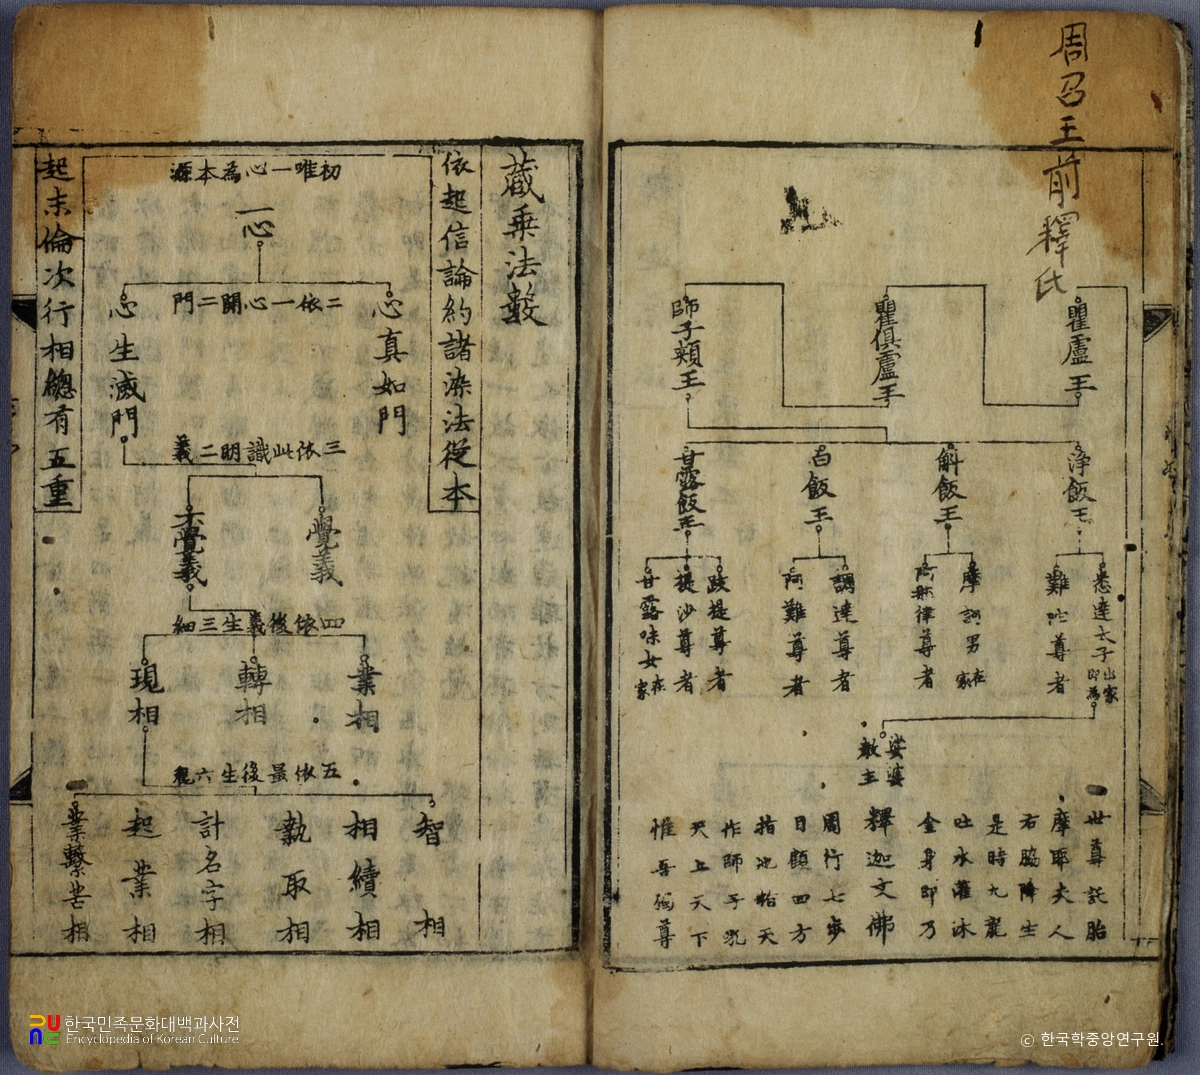 周召王前釋氏
瞿盧王
瞿俱盧王
師子頰王
淨飯王
斛飯王
白飯王
甘露飯王
悉達太子出家即為
難陁尊者
摩訶男在家
阿那律尊者
調達尊者
阿難尊者
跋提尊者
提沙尊者
甘露味女在家
娑婆
教主
釋迦文佛
世尊託胎
摩耶夫人
右脇降生
是時九龍
吐水灌沐
金身即乃
周行七步
目顧四方
指地指天
作師子吼
天上天下
惟吾獨尊
藏乗法數
依起信論約諸染法從本
起末倫次行相緫有五重
初唯一心為本源
一心
二依一心開二門
心真如門
心生滅門
三依此識明二義
覺義
不覺義
四依後義生三細
業相
轉相
現相
五依最後生六麁
智相
相續相
執取相
計名字相
起業相
業繫苦相
한국민족문화대백과사전
Encyclopedia of Korean Culture
ⓒ 한국학중앙연구원.